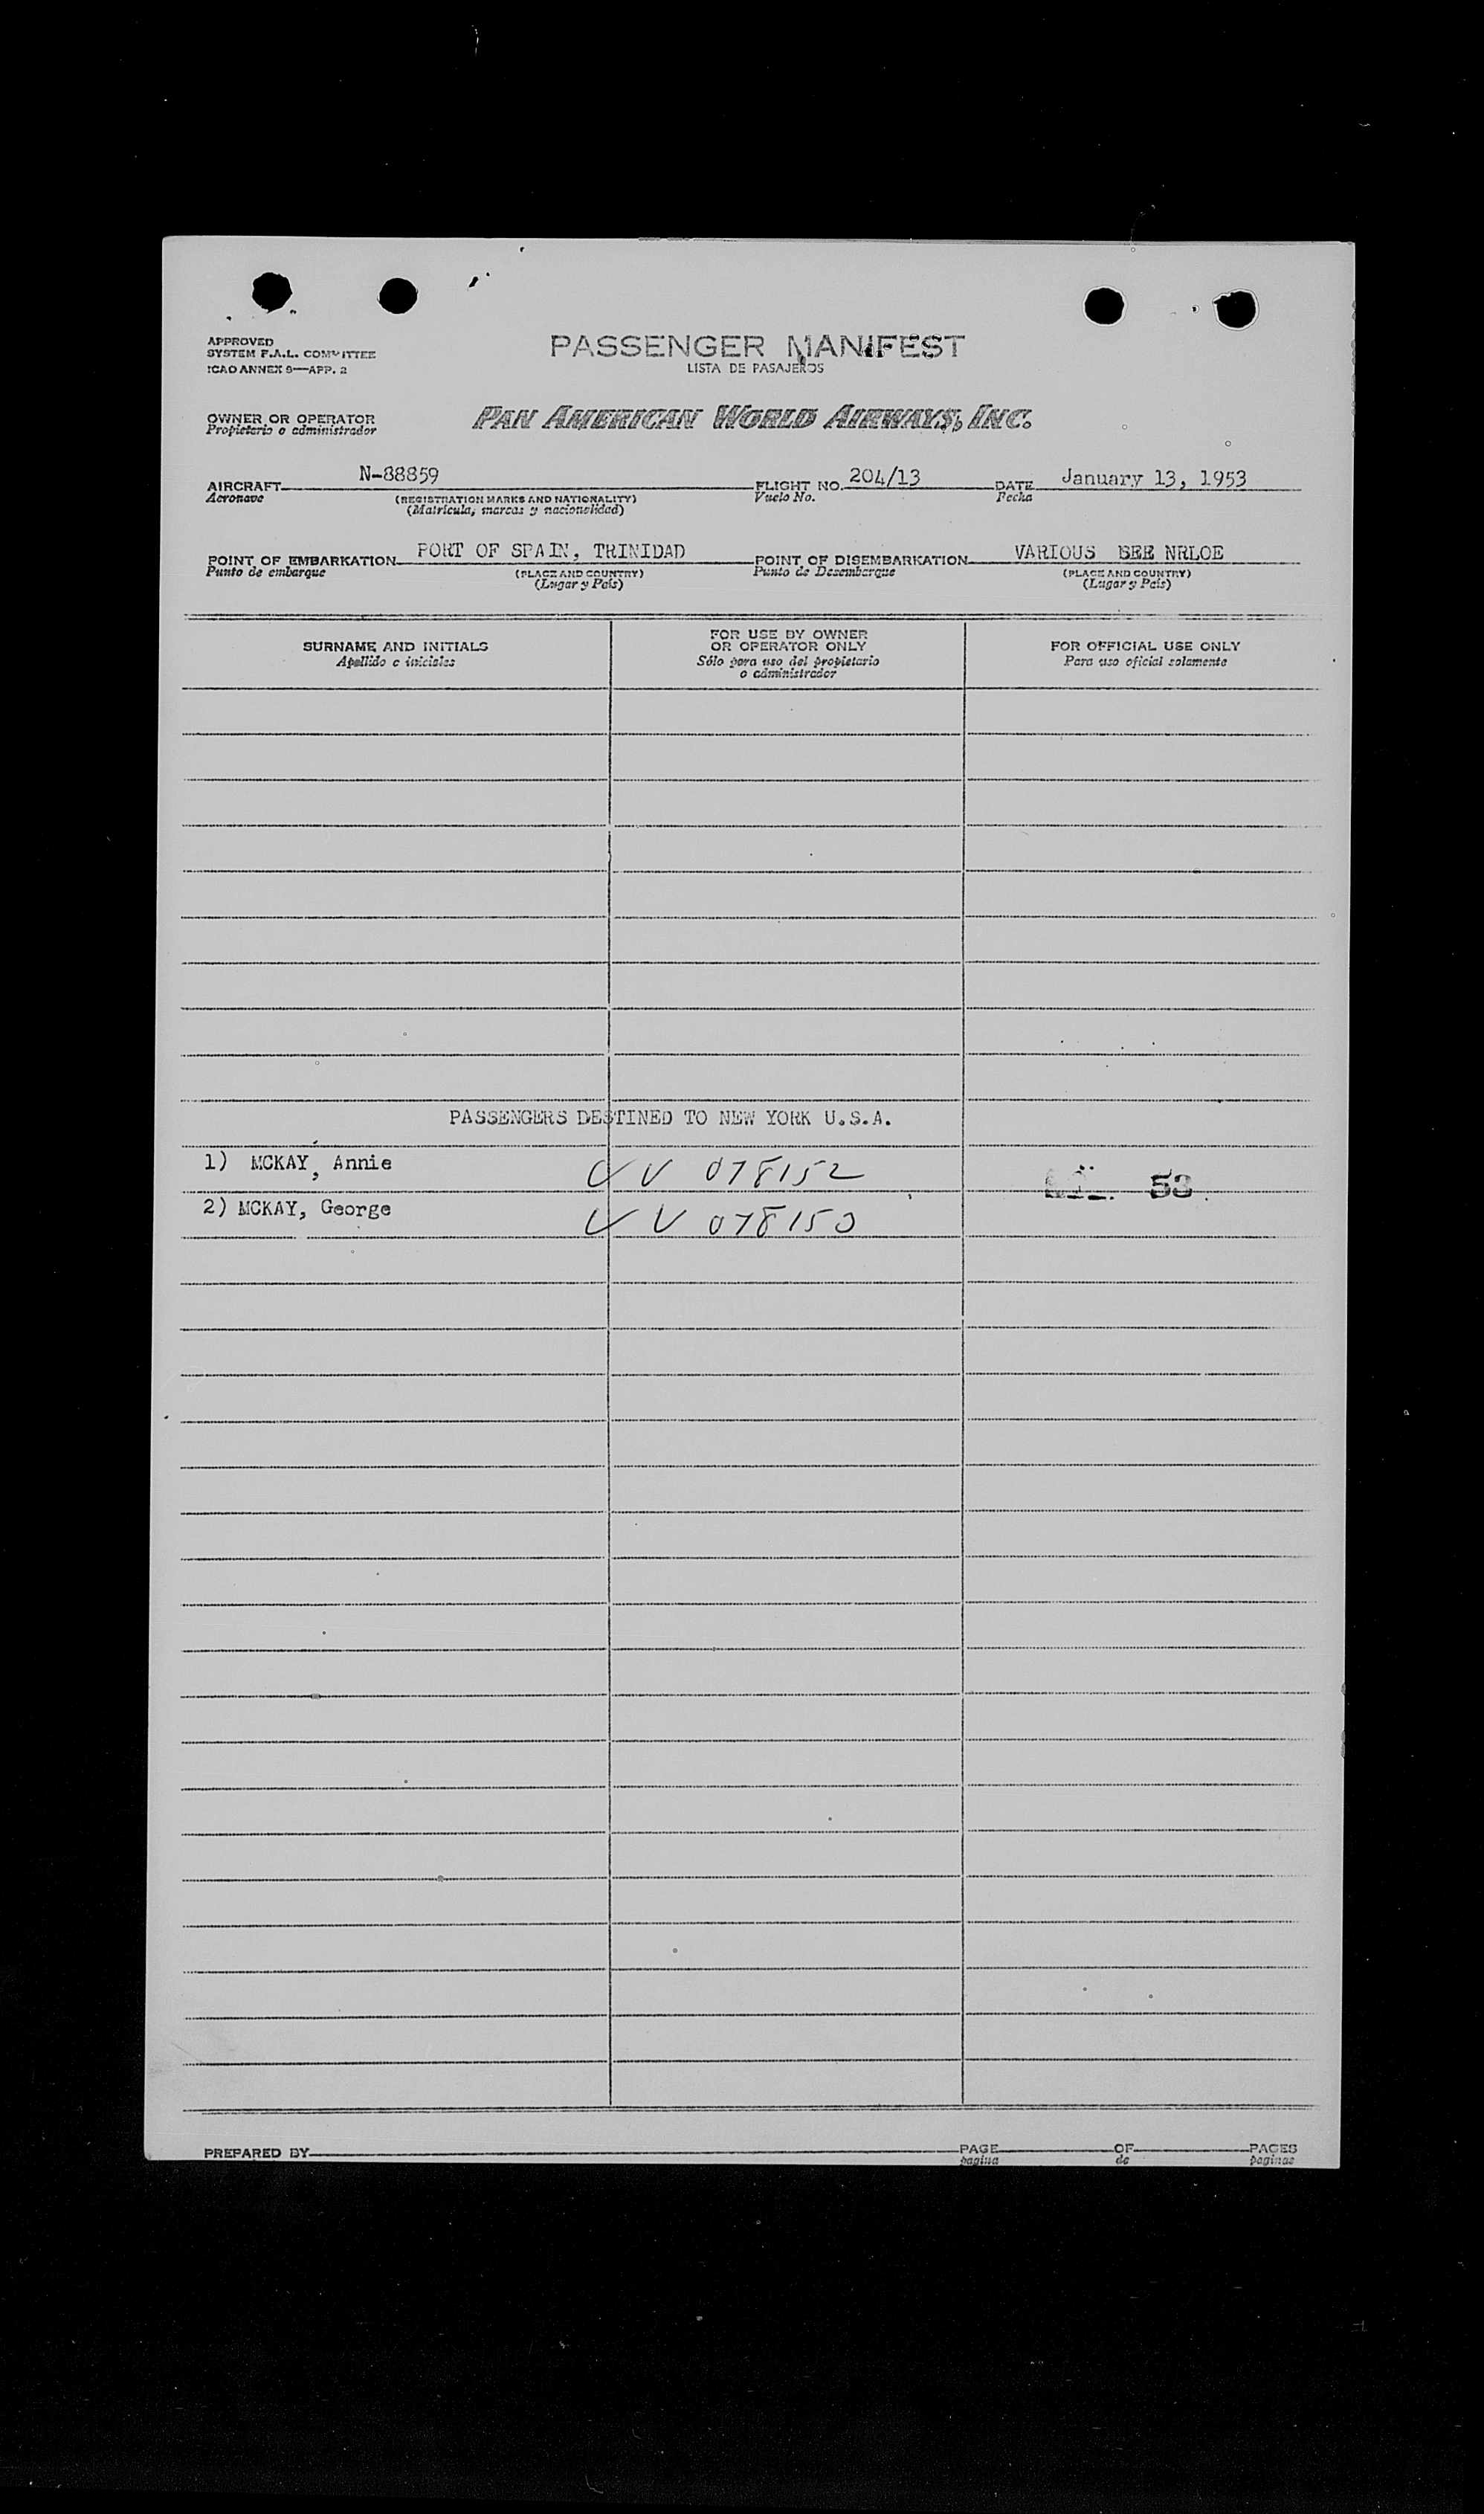 APPROVED
SYSTEM F.A.L. COMMITTEE
ICAO ANNEX 9—APP. 2
PASSENGER MANIFEST
LISTA DE PASAJEROS
OWNER OR OPERATOR
Propietario o administrador
PAN AMERICAN WORLD AIRWAYS, INC.
AIRCRAFT N-88859 FLIGHT NO. 204/13 DATE January 13, 1953
Aeronave (REGISTRATION MARKS AND NATIONALITY) Vuelo No. Fecha
(Matrícula, marcas y nacionalidad)
POINT OF EMBARKATION PORT OF SPAIN, TRINIDAD POINT OF DISEMBARKATION VARIOUS
Punto de embarque (PLACE AND COUNTRY) Punto de Desembarque (PLACE AND COUNTRY)
(Lugar y País) (Lugar y País)
SURNAME AND INITIALS
Apellido e iniciales
FOR USE BY OWNER
OR OPERATOR ONLY
Sólo para uso del propietario
o administrador
FOR OFFICIAL USE ONLY
Para uso oficial solamente
PASSENGERS DESTINED TO NEW YORK U.S.A.
1) MCKAY, Annie VV 078152
53
2) MCKAY, George VV 078150
PREPARED BY PAGE OF PAGES
pagina de paginas